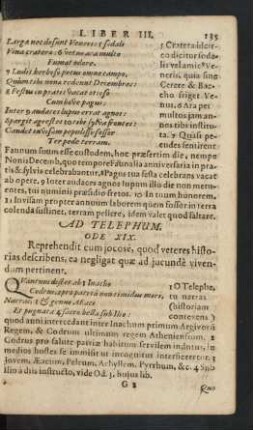 LIBER III.
135
Larga nec desunt Veneris sodali
Vina crateræ: 6 vetus ara multo
Fumat odore.
7 Ludit herboso pecus omne campo,
Quum tibi nonæ redeunt Decembres:
8 Festus in pratis vacat otioso
Cum bove pagus:
Inter 9 audaces lupus errat agnos:
Spargit agrestes tibi sylva frondes:
Gaudet invisam pepulisse fossor
Ter pede terram.
5 Cratera ideir-
co dicitur soda-
lis
Veneris, quia sine
Cerere & Bac-
cho friget Ve-
nus.
multos jam an-
nos tibi institu-
ta
cudes sentirent
Faunum
Nonis Decemb. quo tempore festa illa anniversaria in pra-
tis & sylvis celebrabantur. 8 Pagus tua festa celebrans vacat
ab opere. 9 Inter audaces agnos lupum illo die non metu-
entes, tui numinis præsidio fretos.
Invisam propter annuum laborem quem fossor in terra
colenda sustinet, terram pellere, idem valet quod saltare.
AD TELEPHUM.
ODE XIX.
Reprehendit eum jocose, quod veteres histo-
rias describens, ea negligat quæ ad jucunde viven-
dam pertinent.
Quantum distet ab 1 Inacho
Codrus, pro patria non timidus mori,
Narras, 3 & genus Æaci
Et pugnata 4 sacro bella sub Ilio:
1 O Telephe,
tu narras
(historiam
contexens)
quod anni intercedant inter Inachum primum Argivorum
Regem, & Codrum ultimum regem Atheniensium,
Codrus pro salute patriæ habitu servili indutus, in
medios hostes se immisit ut incognitus interficeretur.
Jovem, Æacum, Peleum, Achyllem, Pyrrhum, &c. 4 Sub
Ilio à diis instructo, vide Od. 3. hujus lib.
G 2
Quo